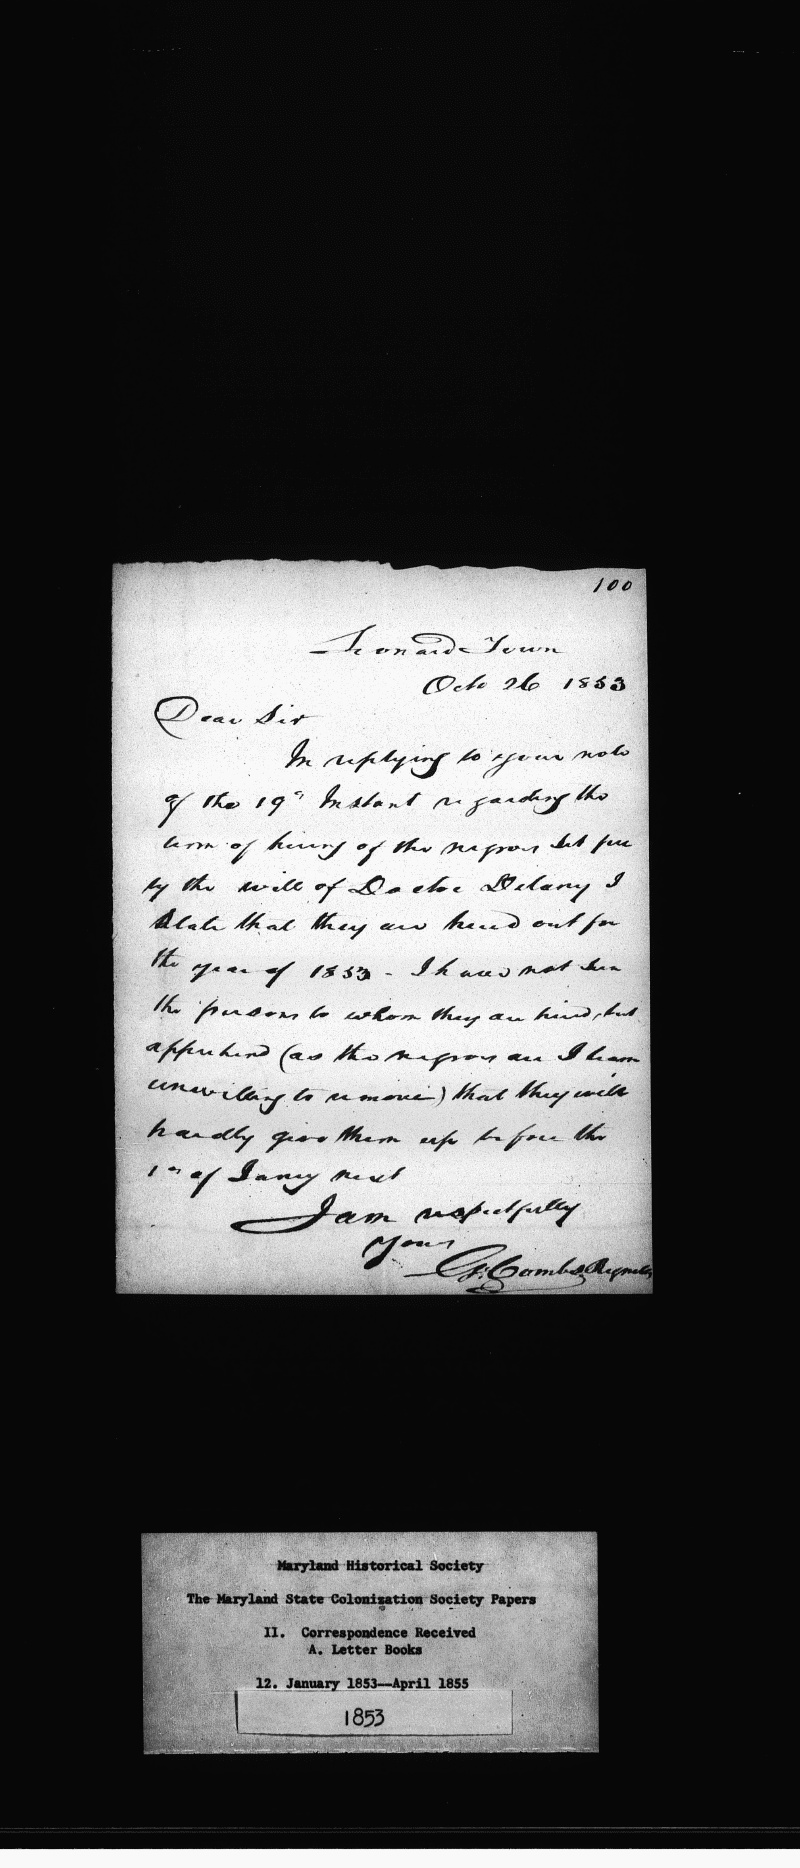 100
Leonard Town
Octo 26 1853
Dear Sir
In replying to your note
of the 19th Instant regarding the
term of hiring of the negroes set free
by the will of Doctor Delany I
state that they are hired out for
the year of 1853 - I have not seen
the persons to whom they are hired, but
apprehend (as the negroes are I learn
unwilling to remove) that they will
hardly give them up before the
1st of Jany next
I am respectfully
Yours
G. Combs
Maryland Historical Society
The Maryland State Colonization Society Papers
II. Correspondence Received
A. Letter Books
12. January 1853--April 1855
1853